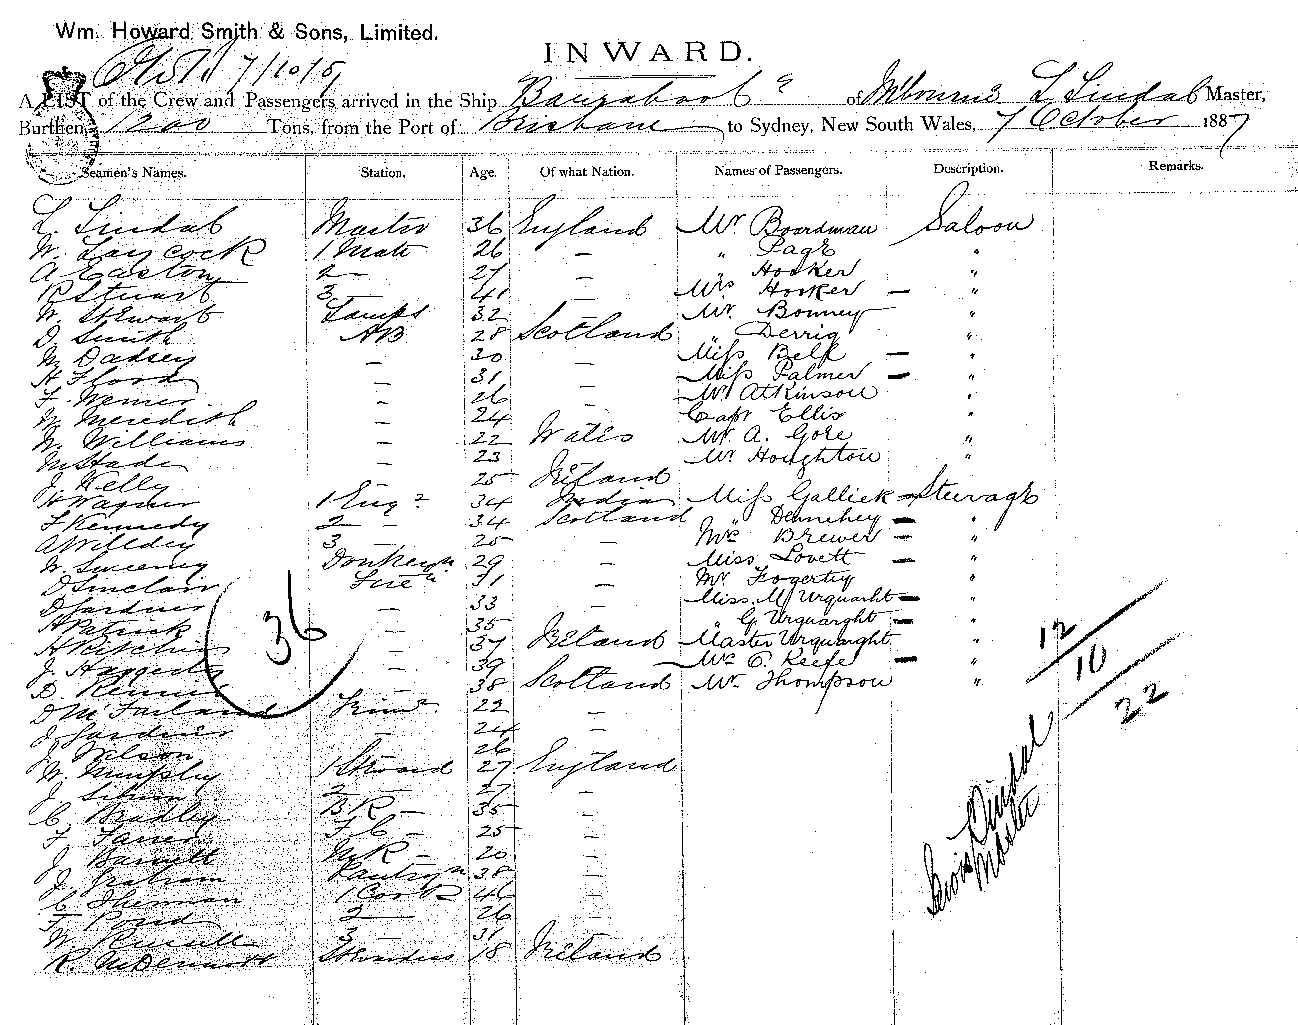 Wm. Howard Smith & Sons, Limited.
INWARD.
A LIST of the Crew and Passengers arrived in the Ship of Melbourne L Lindal Master,
Burthen, 1200 Tons, from the Port of Brisbane to Sydney, New South Wales, 7 October 1887
Seamen's Names. Station. Age. Of what Nation. Names of Passengers. Description. Remarks.
L. Lindal Master 36 England Mr Boardman Saloon
W. Laycock 1 Mate 26 — " Page "
A Easton 2 — 27 — " Hooker "
R Stuart 3 — 41 — Mrs Hooker — "
W. Stewart Lamps 32 — Mr. Bonney "
D. Smith AB 28 Scotland " Derrig "
— 30 — Miss Bell — "
H Flood — 31 — Miss Palmer — "
— 26 — Mr Atkinson "
W. Meredith — 24 Capt Ellis "
W. Williams — 22 Wales Mr. A. Gore "
— 23 Mr Houghton "
J. Kelly 25 Ireland
H Wagner 1 Engr 34 India Miss Gallick — Steerage
F Kennedy 2 — 34 Scotland " Dennehey — "
3 — 25 — Mrs Brewer — "
W. Sweeney 29 Miss Lovett — "
D Sinclair Firen 31 — Mr Fogerty "
D Gardner — 33 Miss M Urquarht — "
A Patrick — 35 " G Urquarght — "
A Ritchie — 37 Ireland Master Urquarght "
J. — 39 Mrs O. Keefe — "
D. — 38 Scotland Mr. Thompson "
D McFarland 22 —
J. Gardner — 24
J. Wilson 26 —
W. 1 Steward 27 England
J. 2 — 27 —
C. Bradley B R — 35 —
F. F C — 25 —
J. Barrett M R — 20 —
J. Graham Pantryn 38 —
C Sherman 1 Cook 46 —
F. Pond 2 — 26 —
W. 3 — 31
R. McDermott 18 Ireland
36
12
10
22
Lewis Lindal
Master